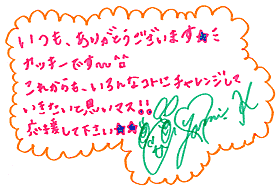 いつも、ありがとうございます★ミ
ガッキーです〜^^
これからも、いろんなコトにチャレンジして
いきたいと思いマス!!
応援して下さい★★